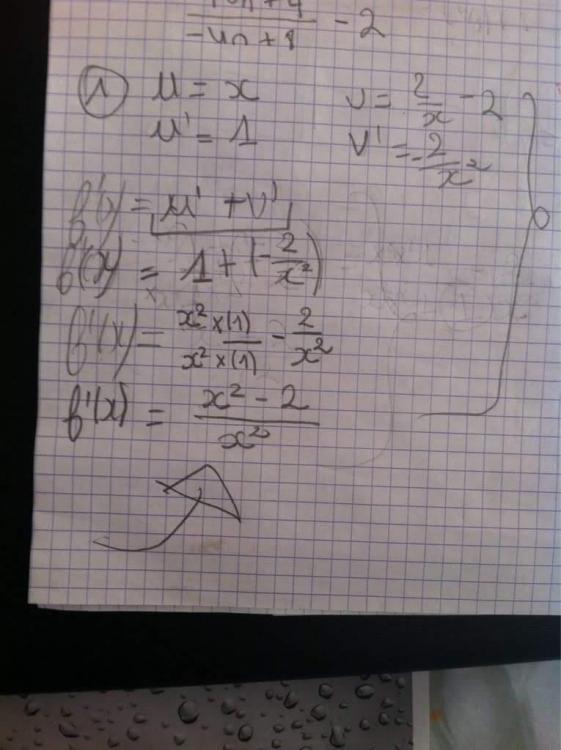 -4n+8 - 2
1 u = x v = 2/x - 2
u' = 1 v' = -2/x²
f'(x) = u' + v'
f'(x) = 1 + (-2/x²)
f'(x) = x²×(1)/x²×(1) - 2/x²
f'(x) = x² - 2/x²